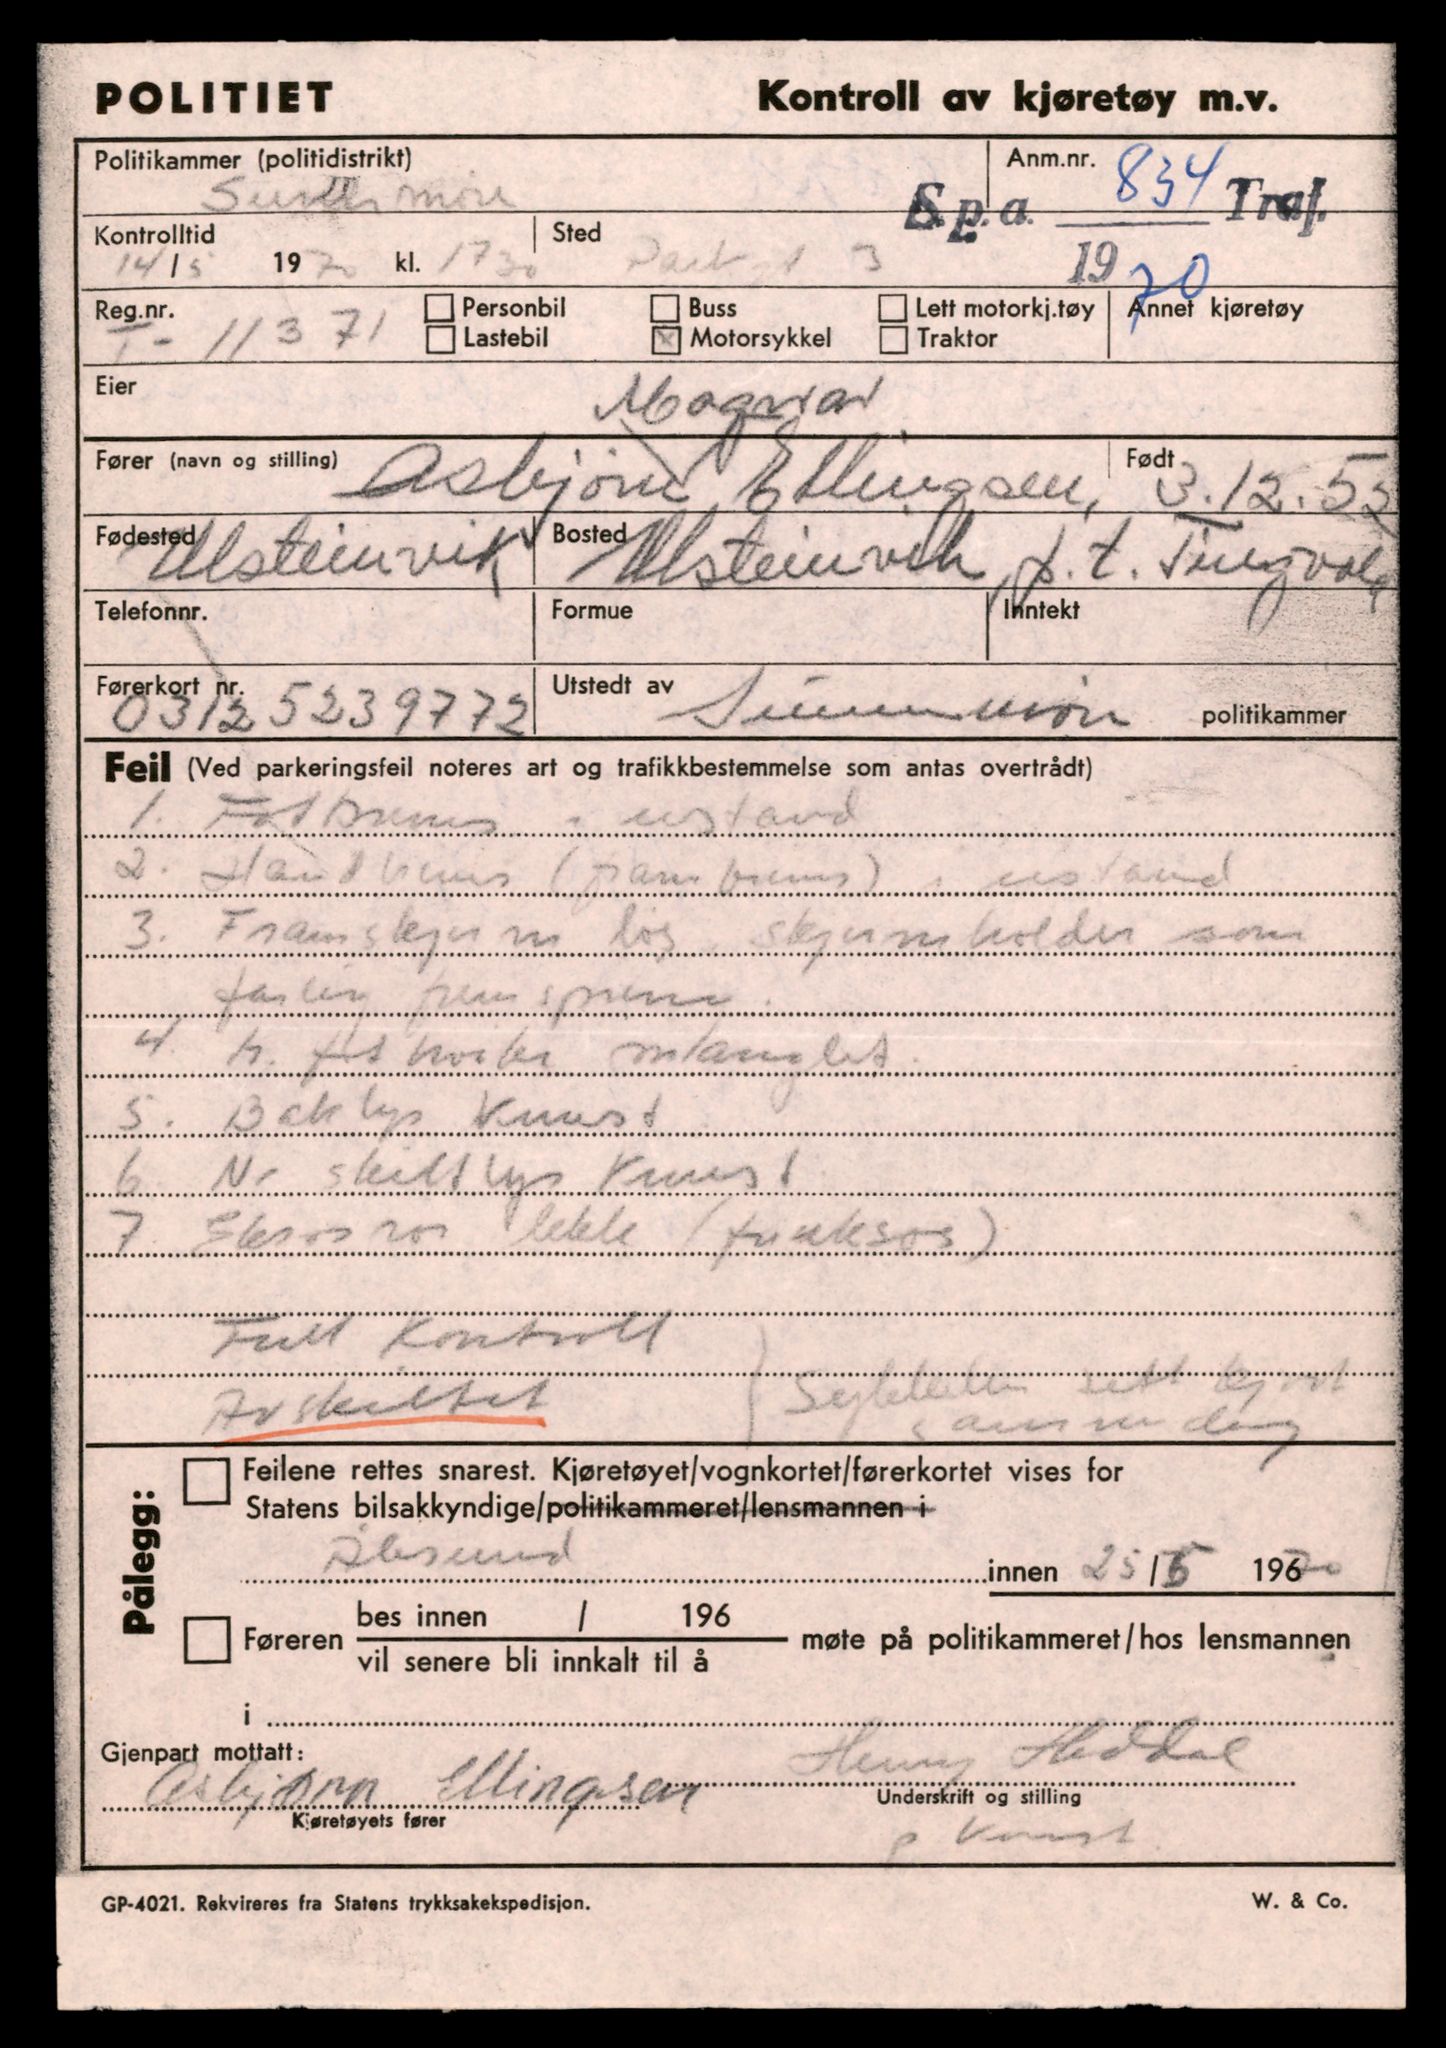 POLITIET
Kontroll av kjøretøy m.v.
Politikammer (politidistrikt)
Sunnmøre
Anm.nr. 834
S.p.a. Traf.
1970
Kontrolltid
14/5 1970 kl. 1730
Sted
3
Reg.nr.
T- 11371
Personbil
Buss
Lett motorkj.tøy
Annet kjøretøy
Lastebil
Motorsykkel
Traktor
Eier
Magnar
Fører (navn og stilling)
Asbjørn Ellingsen,
Født
3.12.52
Fødested
Ulsteinvik
Bosted
Ulsteinvik p.t.
Telefonnr.
Formue
Inntekt
Førerkort nr.
03125239772
Utstedt av
Sunnmøre politikammer
Feil (Ved parkeringsfeil noteres art og trafikkbestemmelse som antas overtrådt)
1. Fotbrems i ustand
2. Handbrems (frambrems) i ustand
3. Framskjerm løs, skjermholder som
farlig fremspring.
4. h. fothviler manglet.
5. Baklys knust
6. Nr skiltlys knust
7. Eksosrør lekk
Full kontroll
Avskiltet
Sykkelen sett kjørt
samme dag
Pålegg:
Feilene rettes snarest. Kjøretøyet/vognkortet/førerkortet vises for
Statens bilsakkyndige/politikammeret/lensmannen i
Ålesund
innen 25/5 19670
Føreren
bes innen / 196
vil senere bli innkalt til å
møte på politikammeret/hos lensmannen
i
Gjenpart mottatt:
Asbjørn Ellingsen
Kjøretøyets fører
Henry Heddal
Underskrift og stilling
p konst.
GP-4021. Rekvireres fra Statens trykksakekspedisjon.
W. & Co.